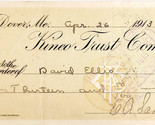 Dover, Mo. Apr. 26 1913
Kinco Trust Com
to the
order of David Ellis
Thirteen and
100